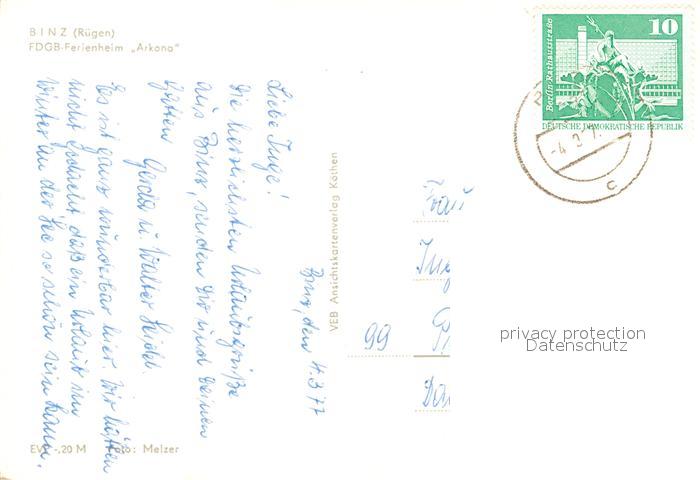 BINZ (Rügen)
FDGB-Ferienheim „Arkona"
Binz, den 4.3.77
Liebe Inge!
Die herzlichsten Urlaubsgrüße
aus Binz, senden Dir und Deinen
Gerda u. Walter Seidel
Es ist ganz wunderbar hier. Wir hätten
nicht gedacht, daß ein Urlaub im
Winter an der See so schön sein kann.
EVP -,20 M Foto: Melzer
VEB Ansichtskartenverlag Köthen
Frau
99
10
Berlin-Rathausstraße
DEUTSCHE DEMOKRATISCHE REPUBLIK
-4.3.7
c
privacy protection
Datenschutz